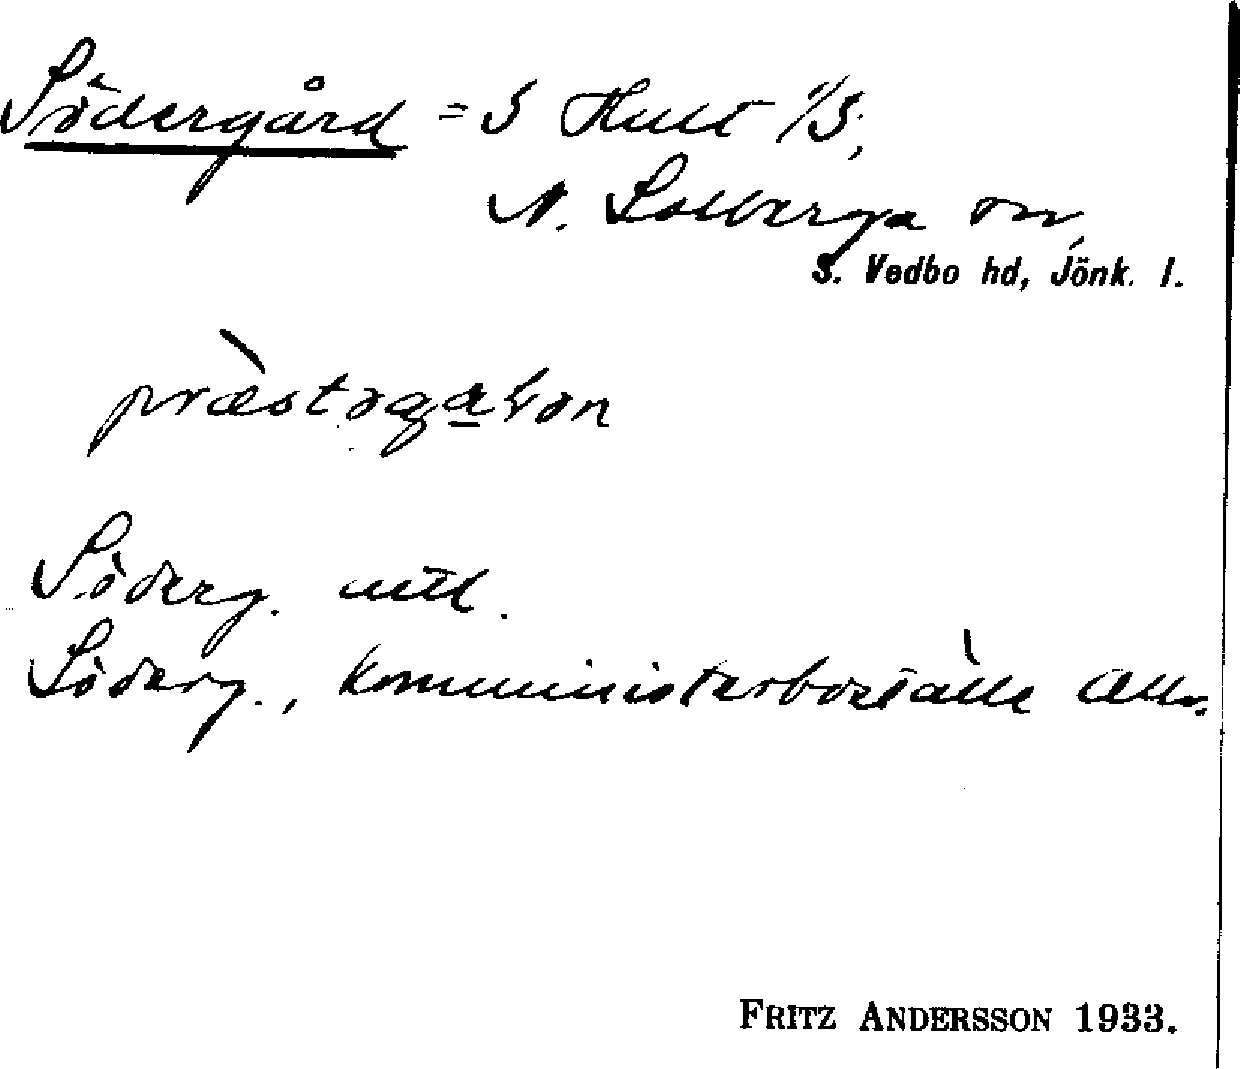 Södergård = S Hult 1/3,
N. Solberga sn,
S. Vedbo hd, Jönk. l.
præ̀stəga̲ɽən
Söderg. utl.
Söderg., komministerboställe
FRITZ ANDERSSON 1933.